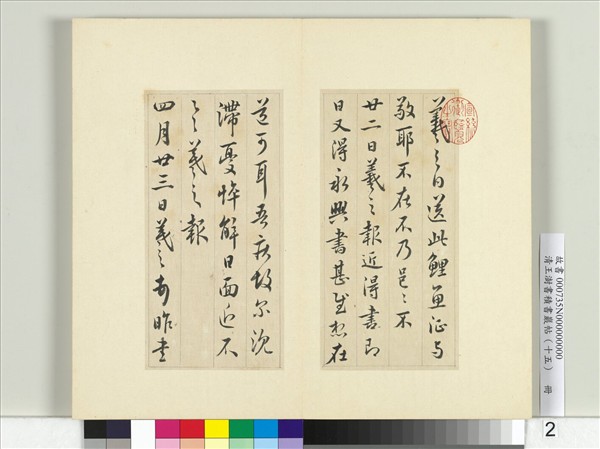 羲之白送此鯉魚征與
敬耶不在不乃邑〻不
廿二日羲之報近得書即
日又得永興書甚慰想在
道可耳吾疾故尔沉
滯憂悴解日面近不
羲之報
四月廿三日羲之 昨書
故書 000735N000000000
清王澍書積書巖帖（十五） 冊
2